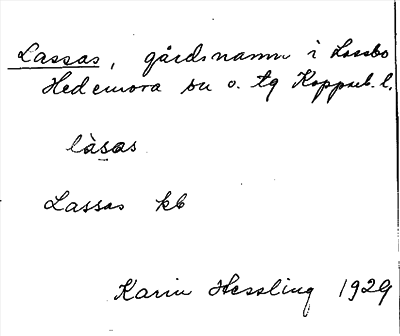 Lassas, gårdsnamn i Lossbo
Hedemora sn o. tg Kopparb. l.
làsas
Lassas kb
Karin Hessling 1929